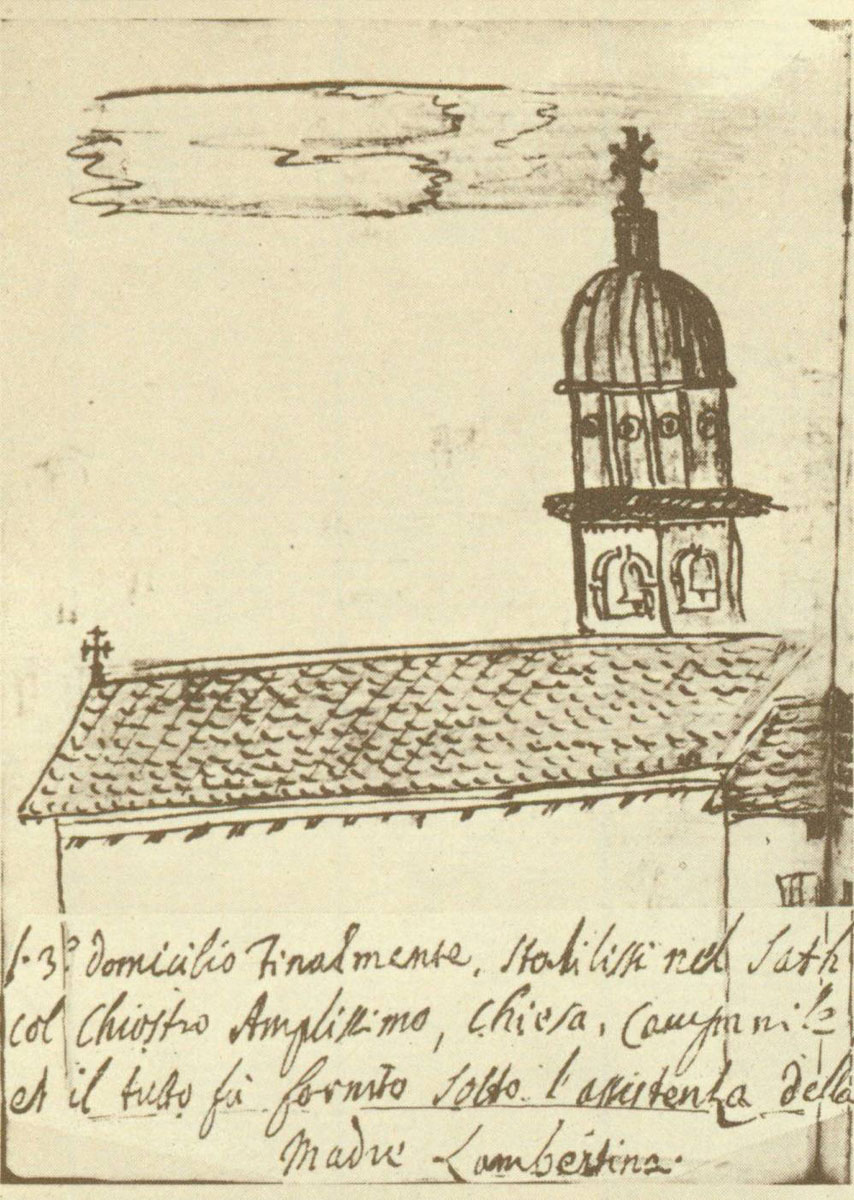 l. 3º domicilio Finalmente, stabilissi nel Sath
col Chiostro Amplissimo, Chiesa, Campanile
et il tutto fù fornito sotto l'assistenza della
Madre Lambertina.